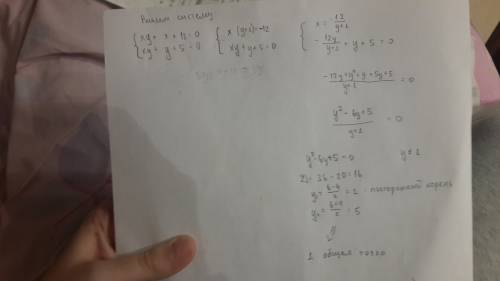 Решим систему
{ xy + x + 12 = 0 { x (y+1) = -12 { x = -12/(y+1)
xy + y + 5 = 0 xy + y + 5 = 0 -12y/(y+1) + y + 5 = 0
(-12y + y² + y + 5y + 5)/(y+1) = 0
(y² - 6y + 5)/(y+1) = 0
y² - 6y + 5 = 0 y ≠ 1
D = 36 - 20 = 16
y₁ = (6-4)/2 = 1 - посторонний корень
y₂ = (6+4)/2 = 5
⇓
1 общая точка